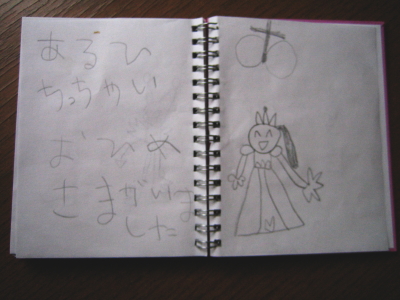 あるひ
ちっちゃい
おひめ
さまがいま
した